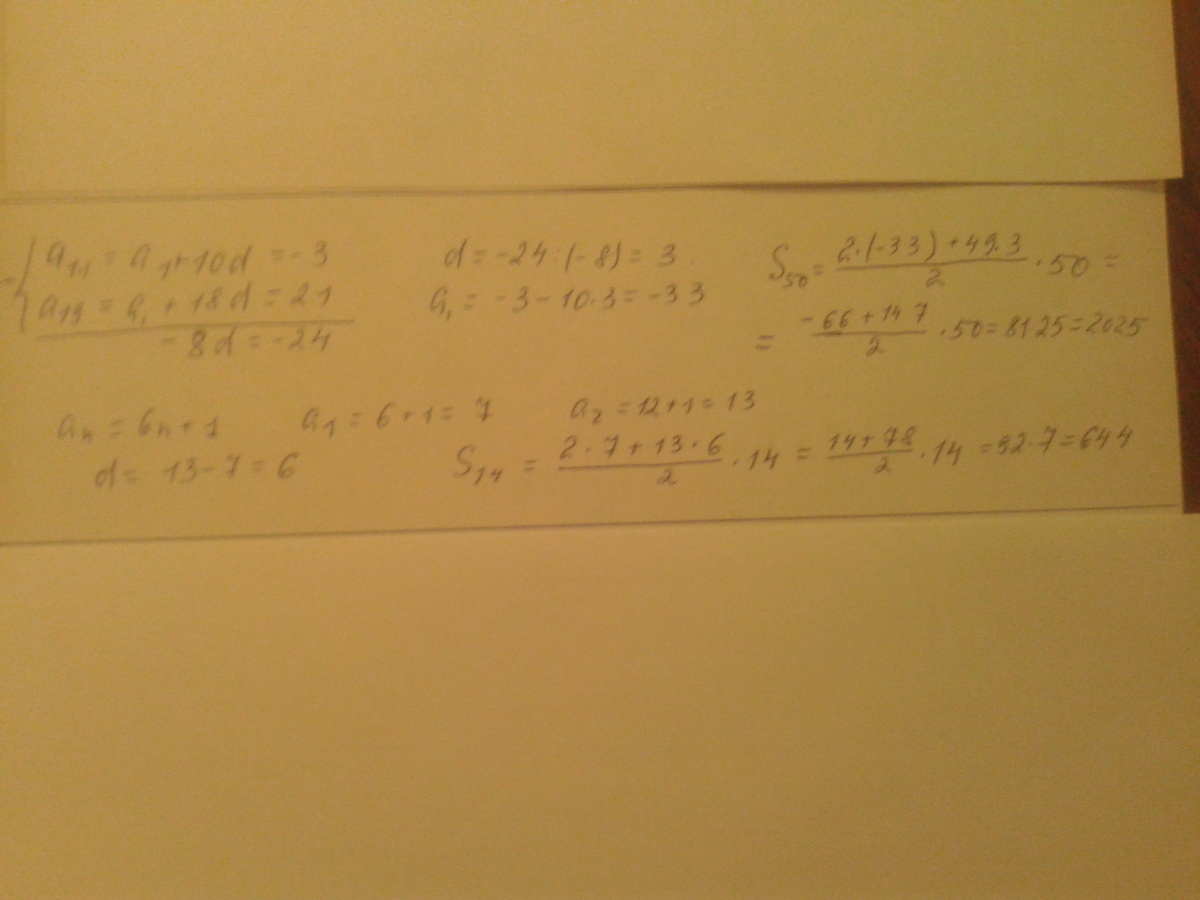 a₁₁ = a₁ + 10d = -3
a₁₉ = a₁ + 18d = 21
-8d = -24
d = -24 : (-8) = 3.
a₁ = -3 - 10·3 = -33
S₅₀ = (2·(-33) + 49·3)/2 · 50 =
= (-66 + 147)/2 · 50 = 81 25 = 2025
aₙ = 6n + 1 a₁ = 6 + 1 = 7 a₂ = 12 + 1 = 13
d = 13 - 7 = 6 S₁₄ = (2·7 + 13·6)/2 · 14 = (14 + 78)/2 · 14 = 92·7 = 644